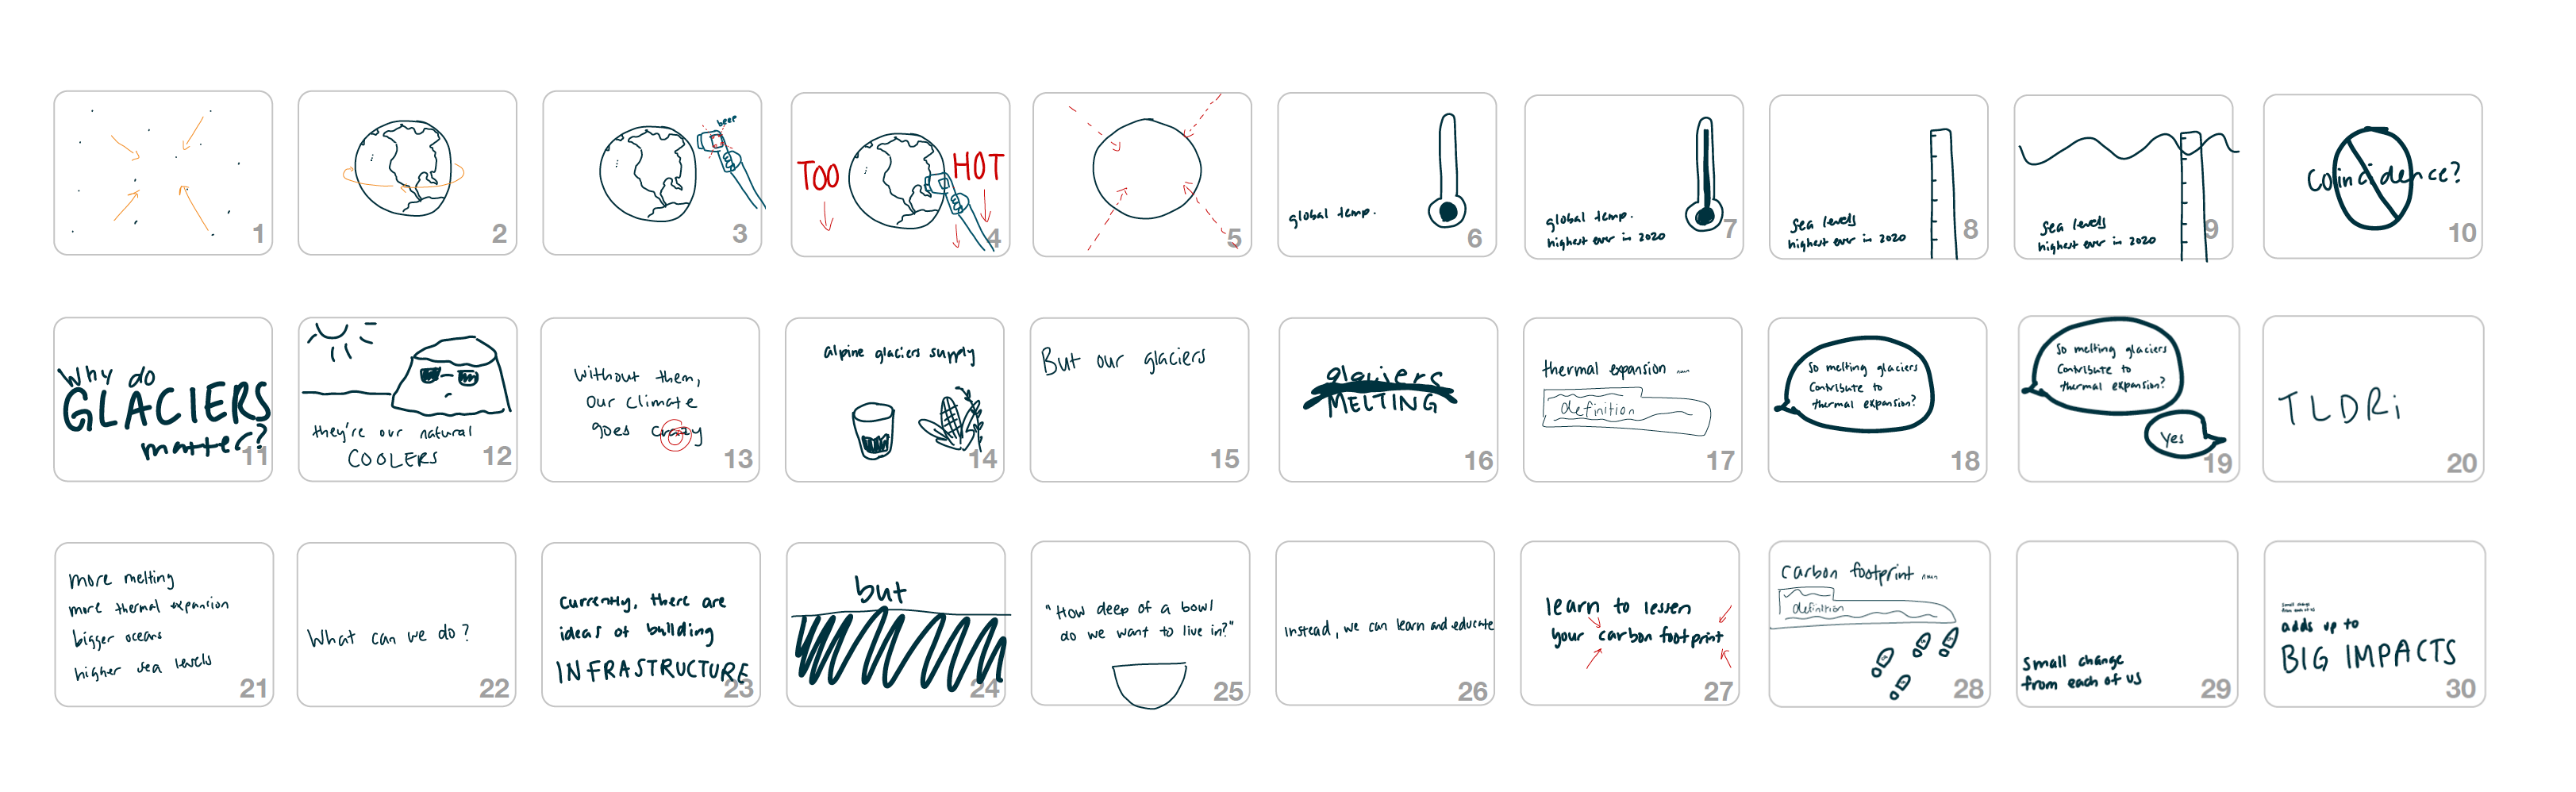 1
2
beep
3
TOO HOT
4
5
global temp.
6
global temp.
highest ever in 2020
7
sea levels
highest ever in 2020
8
sea levels
highest ever in 2020
9
Coincidence?
10
Why do
GLACIERS
matter?
11
they're our natural
COOLERS
12
Without them,
our climate
goes crazy
13
alpine glaciers supply
14
But our glaciers
15
glaciers
MELTING
16
thermal expansion noun
definition
17
So melting glaciers
Contribute to
thermal expansion?
18
So melting glaciers
Contribute to
thermal expansion?
Yes
19
TLDR;
20
more melting
more thermal expansion
bigger oceans
higher sea levels
21
What can we do?
22
Currently, there are
ideas of building
INFRASTRUCTURE
23
but
24
"How deep of a bowl
do we want to live in?"
25
Instead, we can learn and educate
26
learn to lessen
your carbon footprint
27
carbon footprint noun
definition
28
Small change
from each of us
29
Small change
from each of us
adds up to
BIG IMPACTS
30